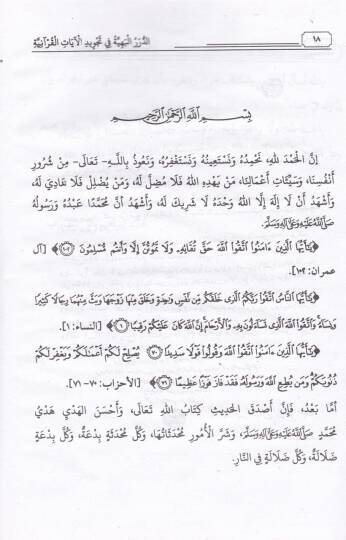 ١٨
الدُّرَرُ الْبَهِيَّةُ فِي تَجْوِيدِ الْآيَاتِ الْقُرْآنِيَّةِ
بِسْمِ اللَّهِ الرَّحْمَٰنِ الرَّحِيمِ
إِنَّ الْحَمْدَ لِلَّهِ، نَحْمَدُهُ وَنَسْتَعِينُهُ وَنَسْتَغْفِرُهُ، وَنَعُوذُ بِاللَّهِ- تَعَالَى- مِنْ شُرُورِ
أَنْفُسِنَا، وَسَيِّئَاتِ أَعْمَالِنَا، مَنْ يَهْدِهِ اللَّهُ فَلَا مُضِلَّ لَهُ، وَمَنْ يُضْلِلْ فَلَا هَادِيَ لَهُ،
وَأَشْهَدُ أَنْ لَا إِلَهَ إِلَّا اللهُ وَحْدَهُ لَا شَرِيكَ لَهُ، وَأَشْهَدُ أَنَّ مُحَمَّدًا عَبْدُهُ وَرَسُولُهُ
صَلَّى اللَّهُ عَلَيْهِ وَعَلَى آلِهِ وَسَلَّمَ.
﴿يَٰٓأَيُّهَا ٱلَّذِينَ ءَامَنُوا۟ ٱتَّقُوا۟ ٱللَّهَ حَقَّ تُقَاتِهِۦ وَلَا تَمُوتُنَّ إِلَّا وَأَنتُم مُّسْلِمُونَ ﴿١٠٢﴾﴾ [آل
عمران: ١٠٢].
﴿يَٰٓأَيُّهَا ٱلنَّاسُ ٱتَّقُوا۟ رَبَّكُمُ ٱلَّذِى خَلَقَكُم مِّن نَّفْسٍ وَٰحِدَةٍ وَخَلَقَ مِنْهَا زَوْجَهَا وَبَثَّ مِنْهُمَا رِجَالًا كَثِيرًا
وَنِسَآءً وَٱتَّقُوا۟ ٱللَّهَ ٱلَّذِى تَسَآءَلُونَ بِهِۦ وَٱلْأَرْحَامَ إِنَّ ٱللَّهَ كَانَ عَلَيْكُمْ رَقِيبًا ﴿١﴾﴾ [النساء: ١].
﴿يَٰٓأَيُّهَا ٱلَّذِينَ ءَامَنُوا۟ ٱتَّقُوا۟ ٱللَّهَ وَقُولُوا۟ قَوْلًا سَدِيدًا ﴿٧٠﴾ يُصْلِحْ لَكُمْ أَعْمَٰلَكُمْ وَيَغْفِرْ لَكُمْ
ذُنُوبَكُمْ وَمَن يُطِعِ ٱللَّهَ وَرَسُولَهُۥ فَقَدْ فَازَ فَوْزًا عَظِيمًا ﴿٧١﴾﴾ [الأحزاب: ٧٠- ٧١].
أَمَّا بَعْدُ، فَإِنَّ أَصْدَقَ الْحَدِيثِ كِتَابُ اللهِ تَعَالَى، وَأَحْسَنَ الْهَدْيِ هَدْيُ
مُحَمَّدٍ صَلَّى اللَّهُ عَلَيْهِ وَعَلَى آلِهِ وَسَلَّمَ، وَشَرَّ الْأُمُورِ مُحْدَثَاتُهَا، وَكُلَّ مُحْدَثَةٍ بِدْعَةٌ، وَكُلَّ بِدْعَةٍ
ضَلَالَةٌ، وَكُلَّ ضَلَالَةٍ فِي النَّارِ.